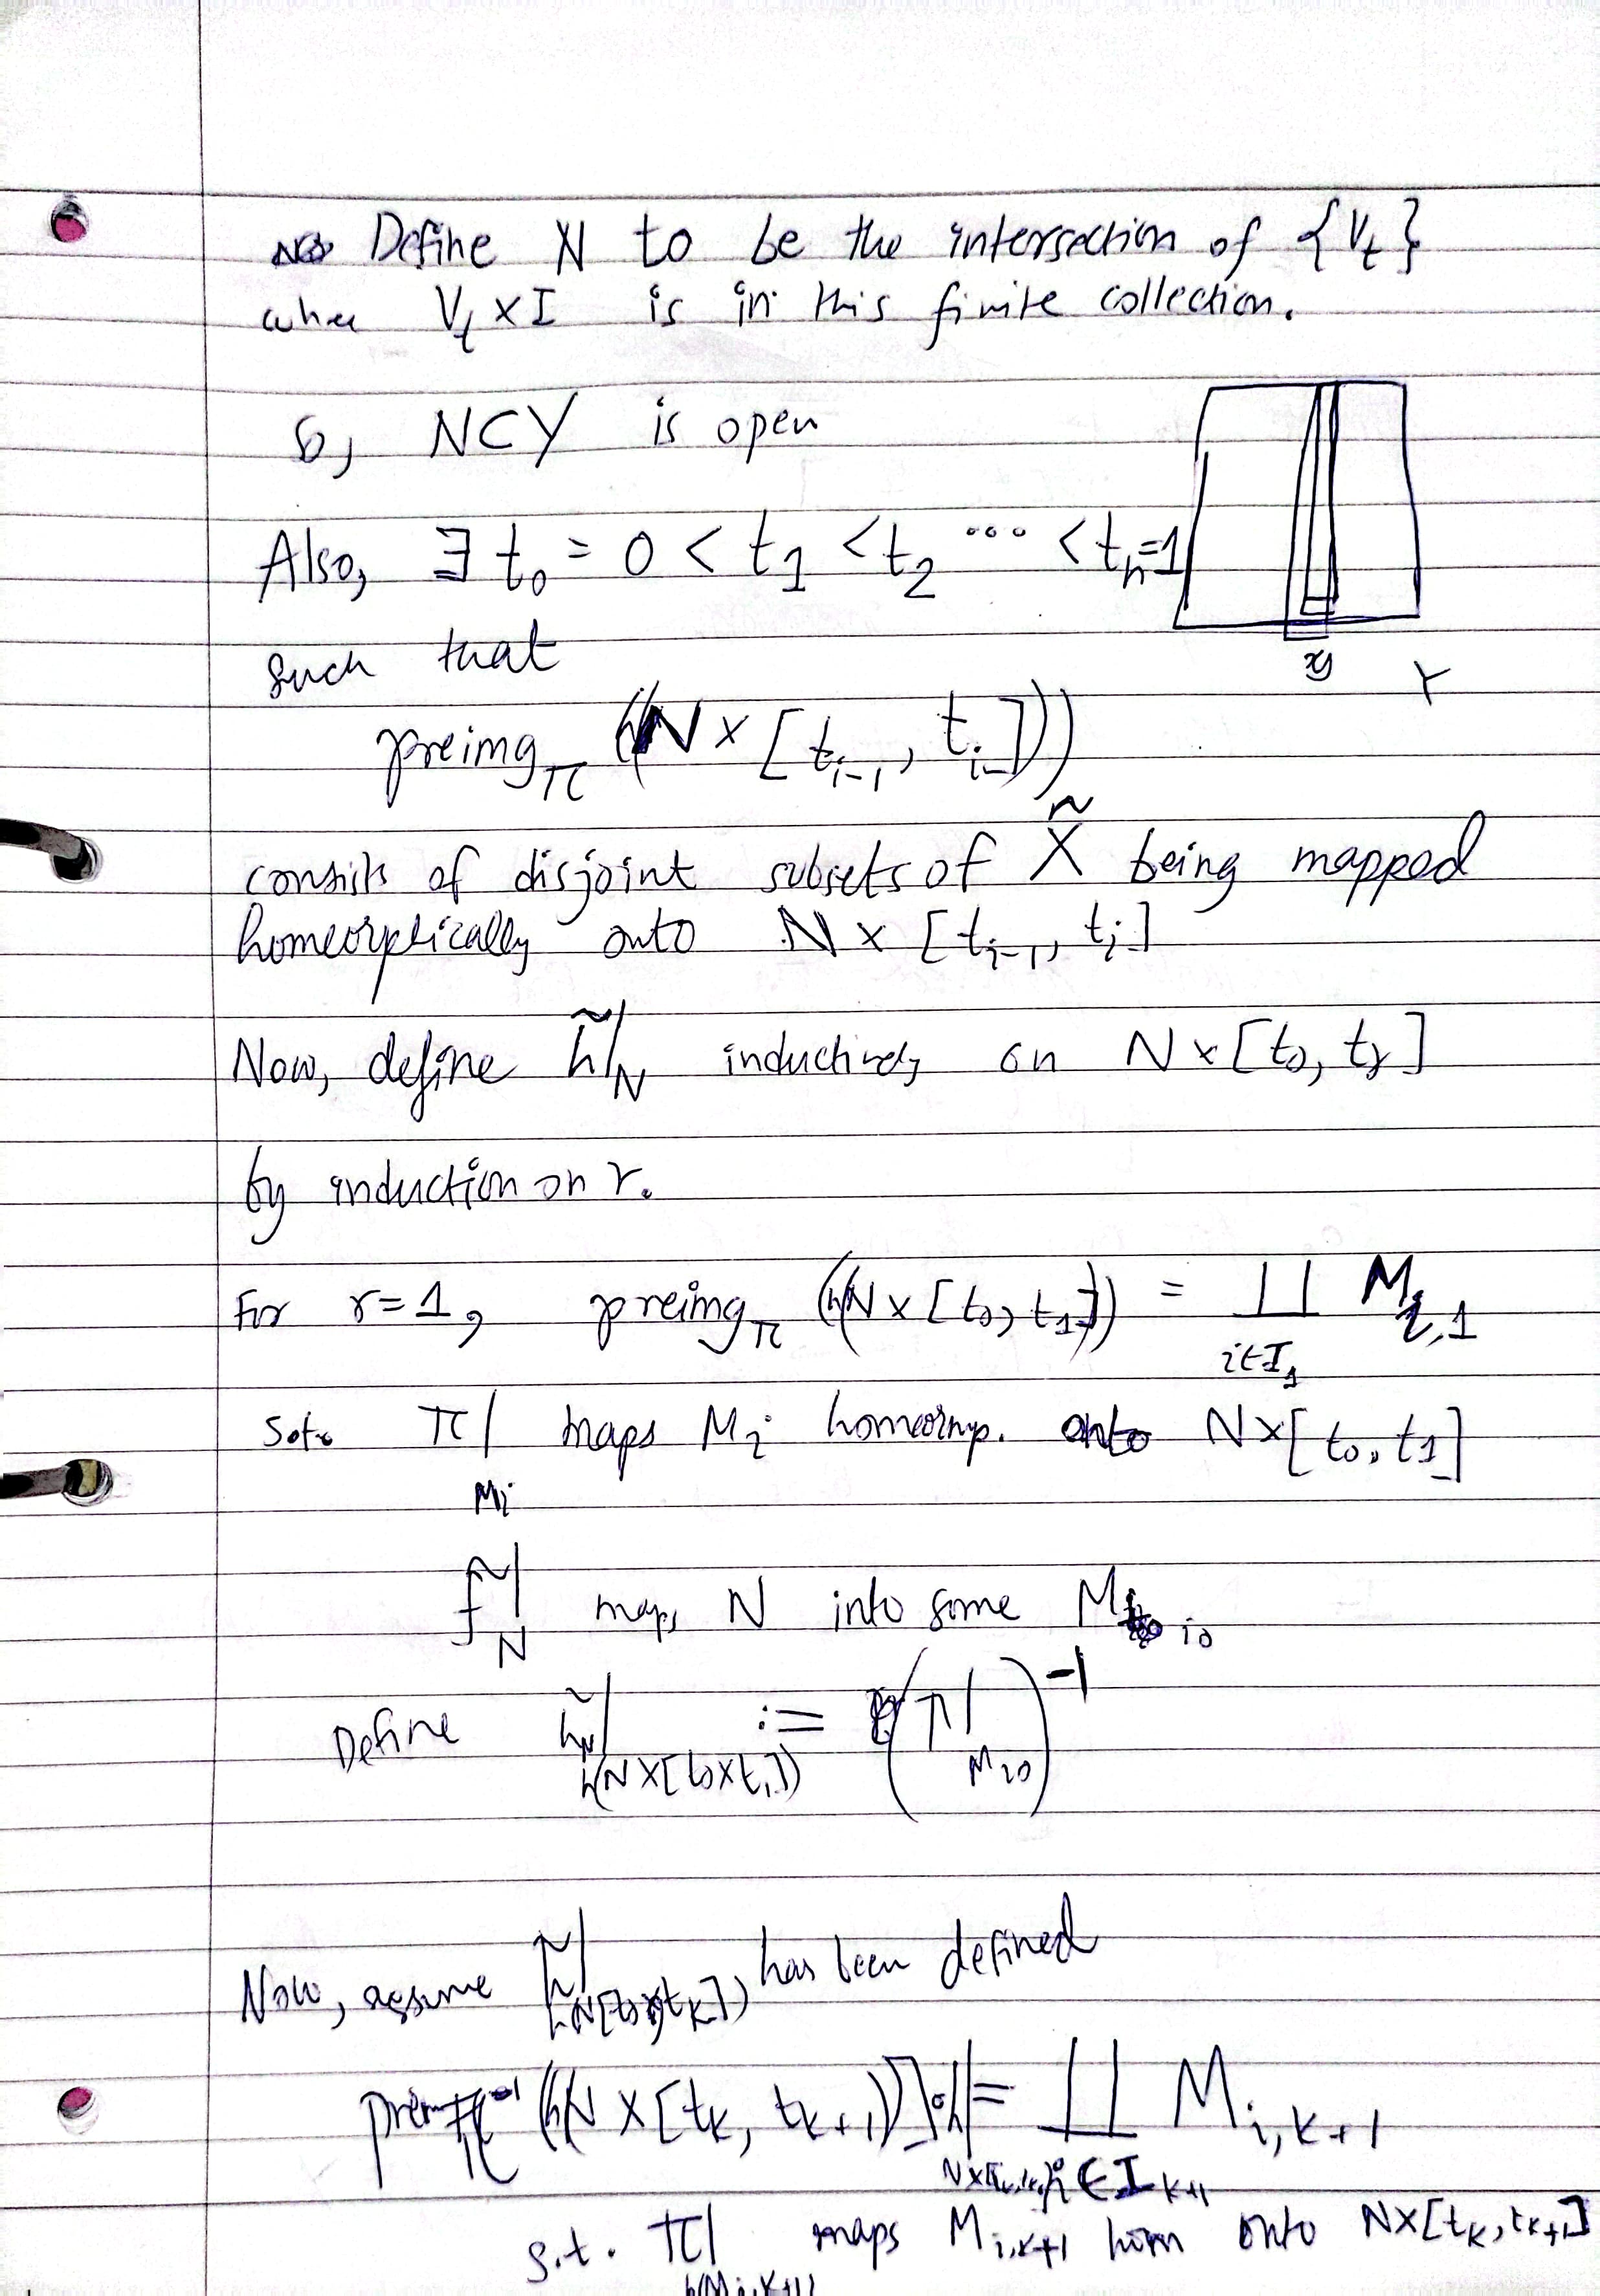 Define N to be the intersection of {V_t}
whee V_t × I is in this finite collection.
So, N⊂Y is open
Also, ∃ t_0 = 0 < t_1 < t_2 ... < t_n=1
such that
y Y
preimg_π (h(N × [t_{i-1}, t_i]))
consists of disjoint subsets of X̃ being mapped
homeorphically onto N × [t_{i-1}, t_i]
Now, define h̃|_N inductively on N × [t_0, t_r]
by induction on r.
For r=1, preimg_π (h(N × [t_0, t_1])) = ∐_{i∈I_1} M_{i,1}
π|_{M_i} maps M_i homeomp. onto N×[t_0, t_1]
f̃|_N maps N into some M_{i_0}
Define h̃_N|_{h(N×[t_0×t_1])} := (π|_{M_{i0}})^{-1}
Now, assume h̃| has been defined
(h(N × [t_k, t_{k+1}])) = ∐_{i∈I_{k+1}} M_{i,k+1}
s.t. π|_{h(M_{i,k+1})} maps M_{i,k+1} hom onto N×[t_k, t_{k+1}]